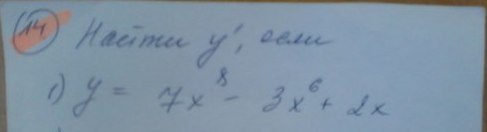 14. Найти y', если
1) y = 7x⁸ - 3x⁶ + 2x